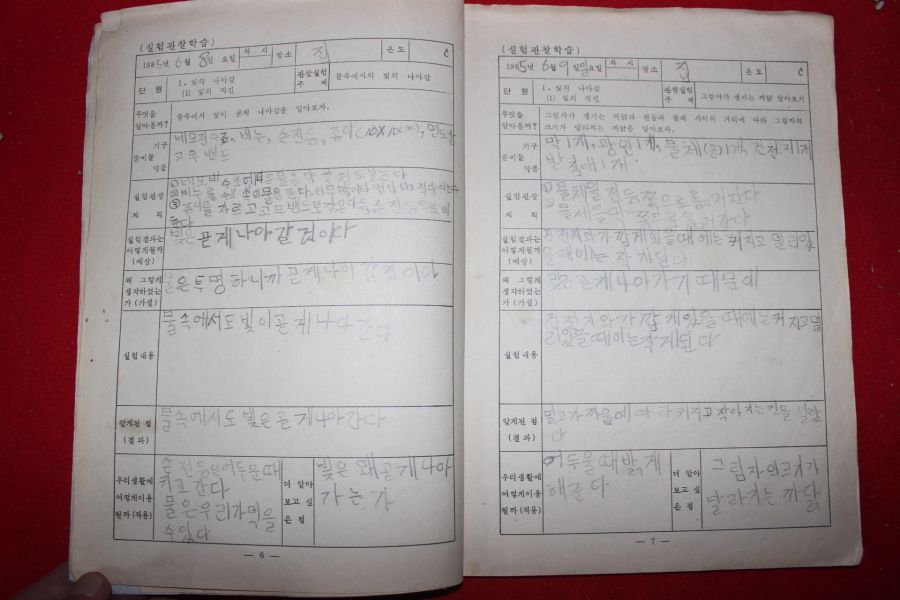 (실험관찰학습)
1985년 6월 8일 요일
차 시
장소 집
온도 C
단 원
1. 빛의 나아감
(1) 빛의 직진
관찰실험
주 제
물속에서의 빛의 나아감
무엇을
알아볼까?
물속에서 빛이 곧게 나아감을 알아보자.
준비물
기구
약품
네모진수조, 비누, 손전등, 종이(10X10cm), 면도칼
고무 밴드
실험관찰
계 획
실험결과는
어떻게될까
(예상)
빛은 곧게 나아갈 것이다
왜 그렇게
생각하였는
가 (가설)
물은 투명하니까 곧게 나아 갈 것이다
실험내용
물속에서도 빛이곧 게 나아 간다
알게된 점
(결과)
물속에서도 빛은 곧 게 나아 간다
우리생활에
어떻게이용
될까(적용)
손 전등은 어두운 때
켜고 간다
물은 우리가 먹을
수 있다
더 알아
보고 싶
은 점
빛은 왜 곧 게 나아
가는 가
— 6 —
(실험관찰학습)
1985년 6월 9일 일요일
차 시
장소 집
온도 C
단 원
1. 빛의 나아감
(1) 빛의 직진
관찰실험
주 제
그림자가 생기는 까닭 알아보기
무엇을
알아볼까?
그림자가 생기는 까닭과 전등과 물체 사이의 거리에 따라 그림자의
크기가 달라지는 까닭을 알아보자.
준비물
기구
약품
막 1개, 광원 1개, 물체(공)1개, 건전지1개
받침대 1개
실험관찰
계 획
① 물체를 전등쪽으로 옮겨간다
실험결과는
어떻게될까
(예상)
왜 그렇게
생각하였는
가 (가설)
빛은 곧 게 나아가기 때문에
실험내용
알게된 점
(결과)
멀고 가까움에 따라 커지고 작아지는 것을 알았
다
우리생활에
어떻게이용
될까(적용)
어두울 때 밝게
해준다
더 알아
보고 싶
은 점
그림자의크기가
달라지는 까닭
— 7 —